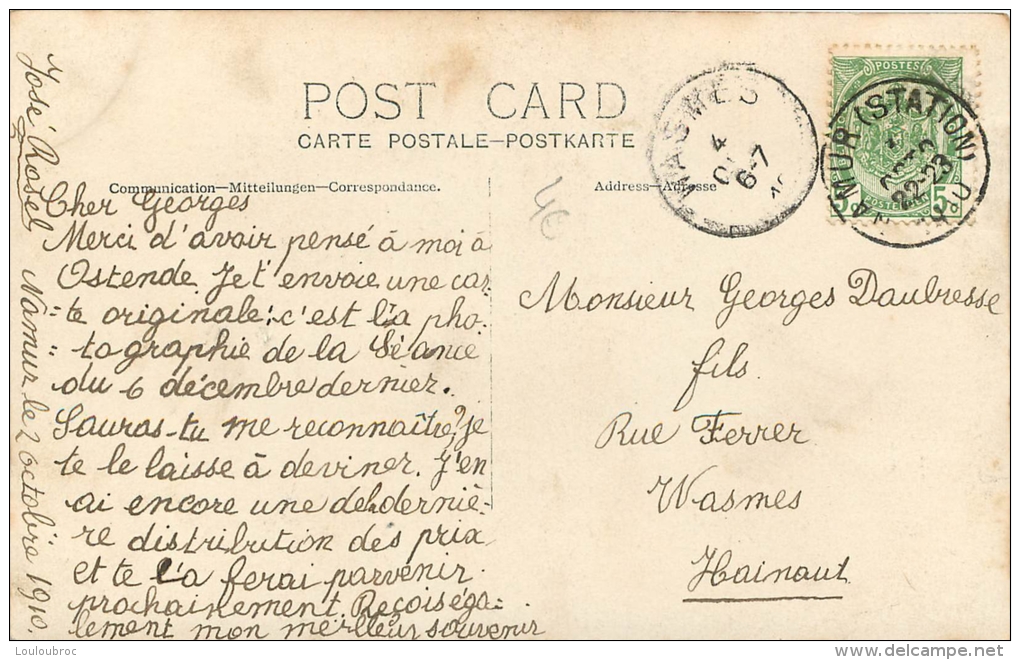 POST CARD
CARTE POSTALE-POSTKARTE
Communication-Mitteilungen-Correspondance.
Address-Adresse
Cher Georges
Merci d'avoir pensé à moi à
Ostende. Je t'envoie une car
=te originale; c'est la pho-
=tographie de la Séance
du 6 décembre dernier.
Sauras-tu me reconnaître? je
te le laisse à deviner. J'en
ai encore une de la derniè-
re distribution des prix
et te la ferai parvenir
prochainement. Reçois éga=
lement mon meilleur souvenir
José Rosel Namur le 2 octobre 1910.
Monsieur Georges Daubresse
fils.
Rue Ferrer
Wasmes
Hainaut
4€
WASMES
4
6-7
POSTES
NAMUR (STATION)
22-23
5
© Louloubroc
www.delcampe.net